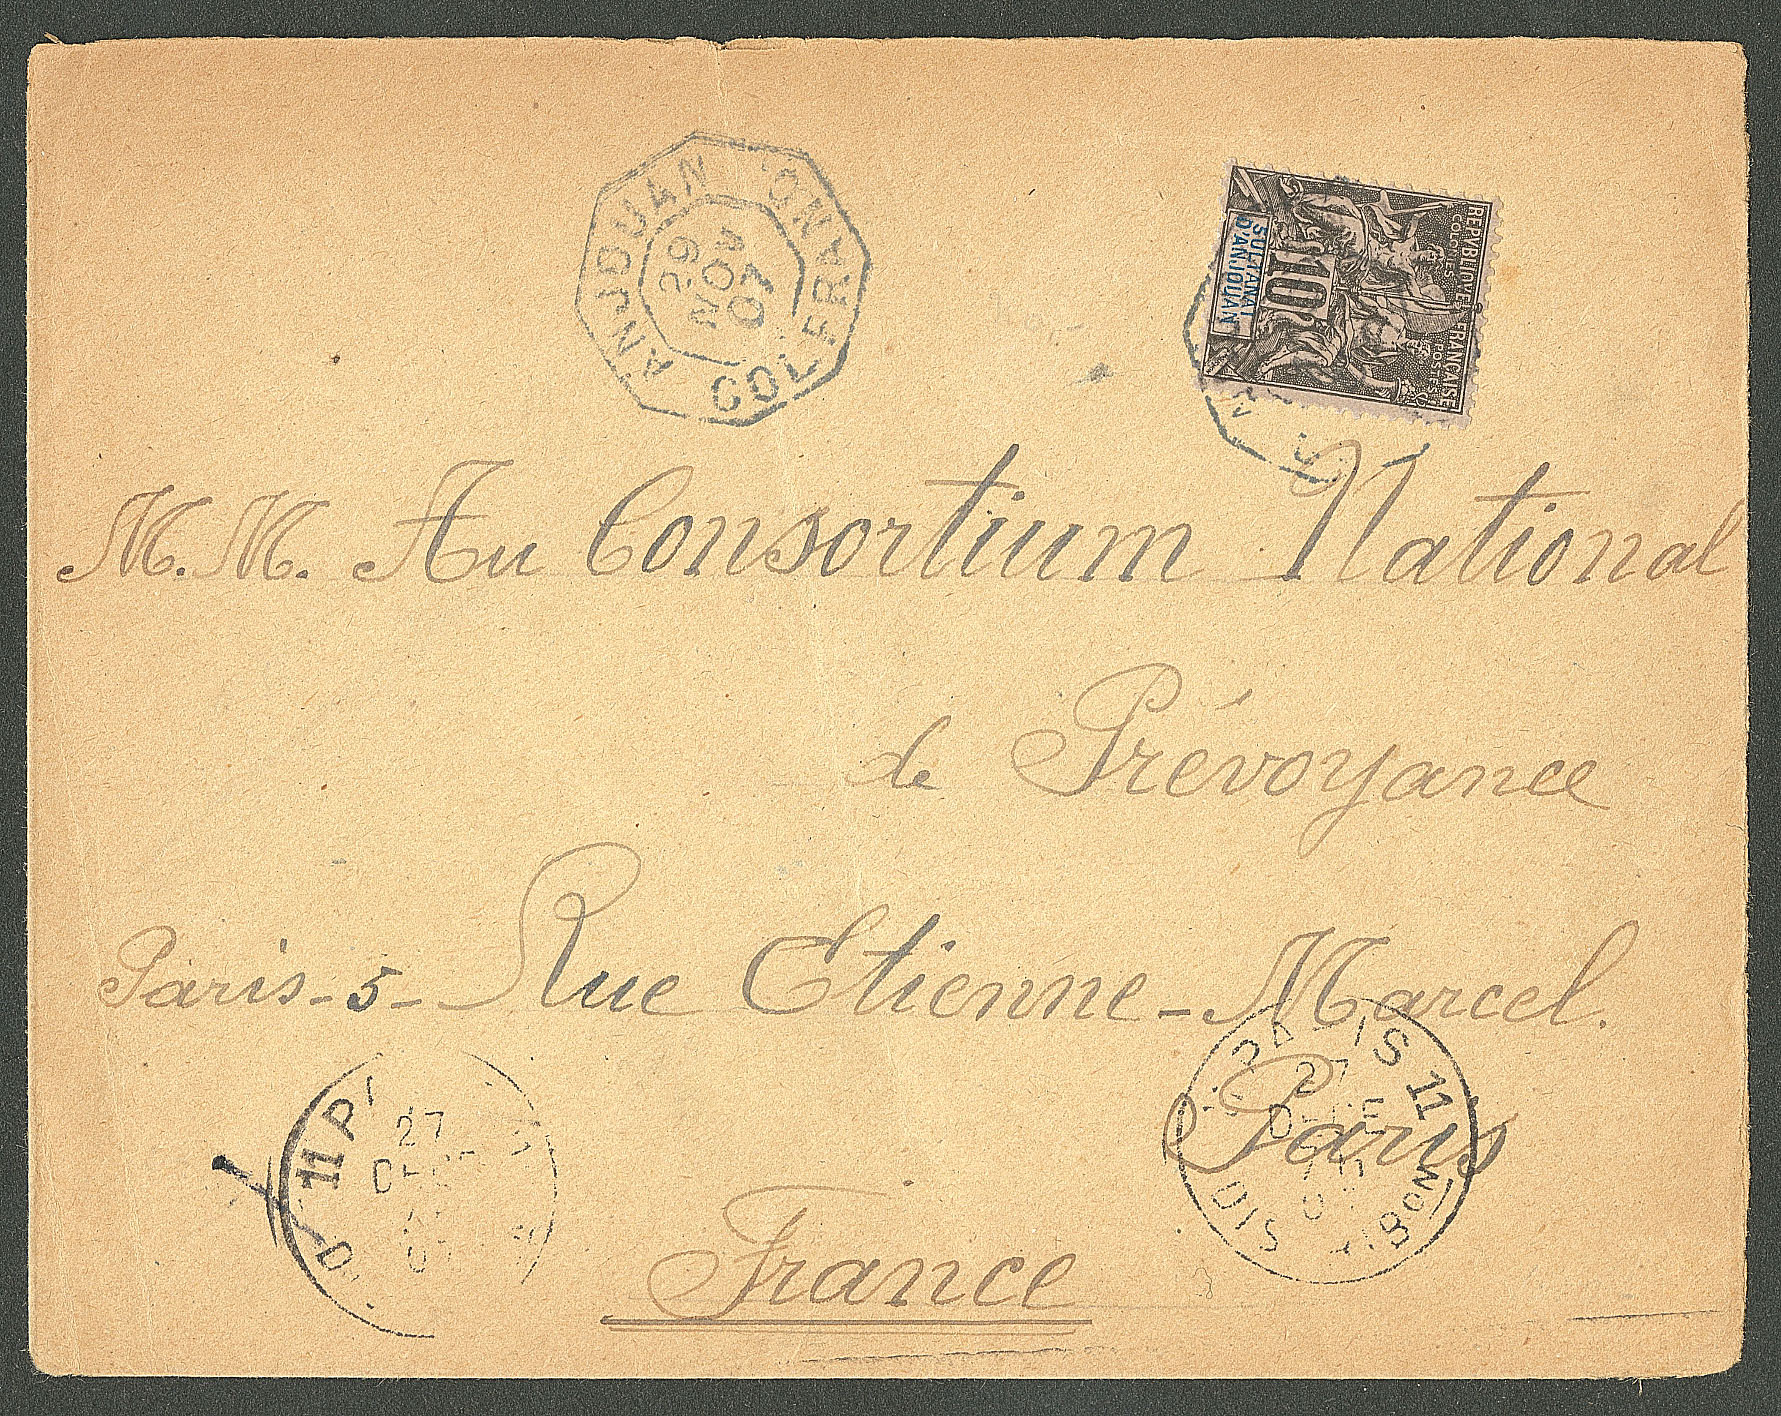 ANJOUAN
COL. FRANÇ
29
NOV
07
REPVBLIQVE FRANÇAISE
COLONIES POSTES
10
SULTANAT
D'ANJOUAN
M.M. Au Consortium National
de Prévoyance
Paris-5-Rue Etienne-Marcel.
Paris
France
11 P
27
PARIS 11
27
DECE